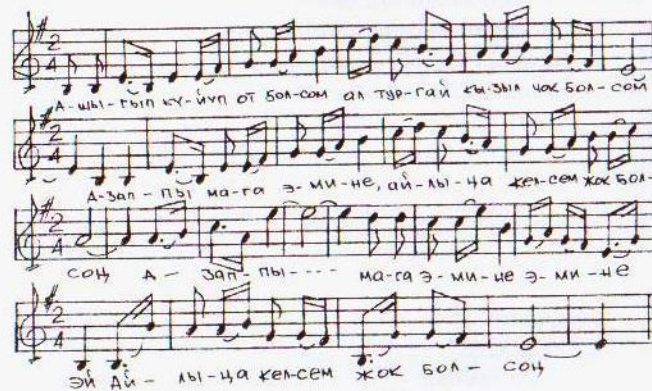 А-шы-гып кү-йүп от бол-сом ал тур-гай кы-зыл чок бол-сом
А-зап-пы ма-га э-ми-не, ай-лы-ңа кел-сем жок бол-
соң А- зап-пы---- ма-га э-ми-не э-ми-не
эй Ай-лы-ңа кел-сем жок бол-соң